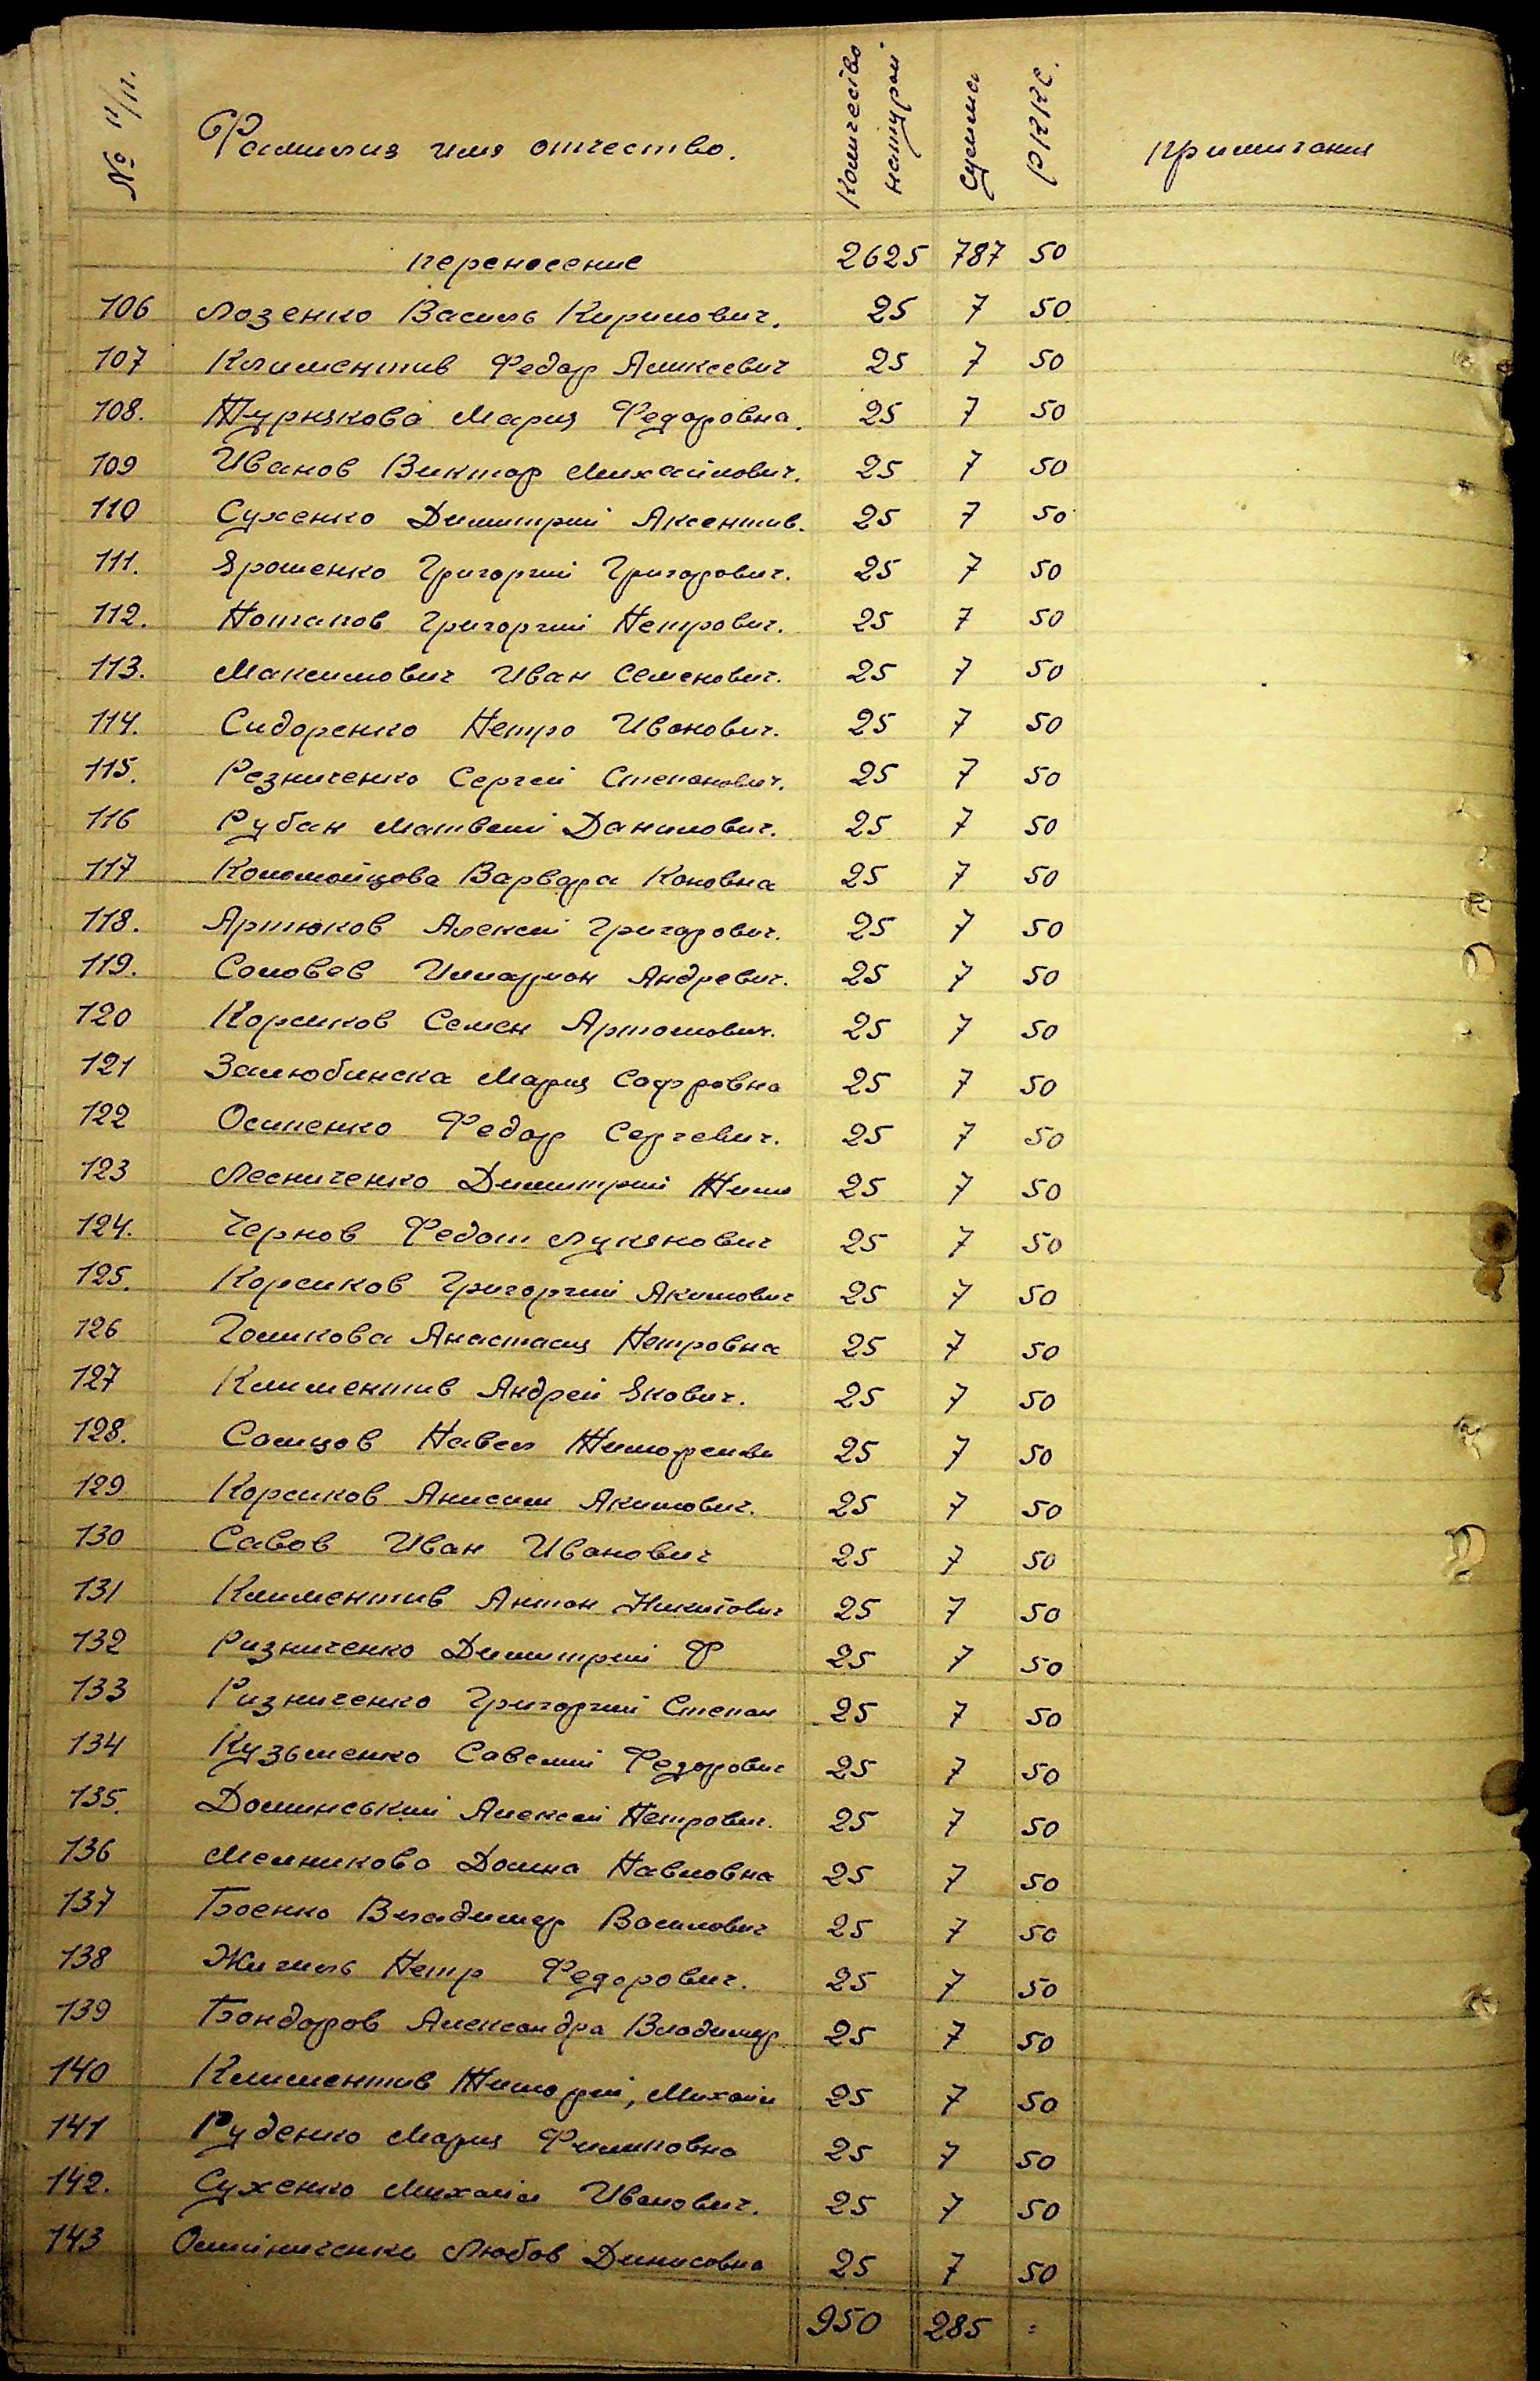 № п/п. Фамилия имя отчество. Количество натурой сумма РККС. примичания
переносение 2625 787 50
106 Лозенко Василь Кирилович. 25 7 50
107 Климентив Федор Аликсевич 25 7 50
108. Турнякова Мария Федоровна. 25 7 50
109 Иванов Виктор Михайлович. 25 7 50
110 Сухенко Димитрий Аксентив. 25 7 50
111. Ярошенко Григорий Григорович. 25 7 50
112. Потапов Григорий Петрович. 25 7 50
113. Максимович Иван Семенович. 25 7 50
114. Сидоренко Петро Иванович. 25 7 50
115. Резниченко Сергей Степанович. 25 7 50
116 Рубан Матвей Данилович. 25 7 50
117 Коломойцова Варвара Коновна 25 7 50
118. Артюков Алексей Григорович. 25 7 50
119. Соловев Иларион Андревич. 25 7 50
120 Корсиков Семен Артомович. 25 7 50
121 Залюбинска Мария Софровна 25 7 50
122 Осипенко Федор Сергевич. 25 7 50
123 Лесниченко Димитрий Тим 25 7 50
124. Чернов Федот Лукянович 25 7 50
125. Корсиков Григорий Акимович 25 7 50
126 Голикова Анастасия Петровна 25 7 50
127 Климентив Андрей Якович. 25 7 50
128. Сомцов Павел Тимофеиви 25 7 50
129 Корсиков Анисим Акимович. 25 7 50
130 Савов Иван Иванович 25 7 50
131 Климентив Антон Никитович 25 7 50
132 Ризниченко Димитрий Ф 25 7 50
133 Ризниченко Григорий Степан 25 7 50
134 Кузьменко Савелий Федорович 25 7 50
135. Долинський Алексей Петрович. 25 7 50
136 Мелникова Домна Павловна 25 7 50
137 Боенко Владимер Василович 25 7 50
138 Жигиль Петр Федорович. 25 7 50
139 Бондоров Александра Владимер 25 7 50
140 Климентив Тимофей, Михайл 25 7 50
141 Руденко Мария Филиповна 25 7 50
142. Сухенко Михайл Иванович. 25 7 50
143 Олийниченко Любов Динисовна 25 7 50
950 285 =